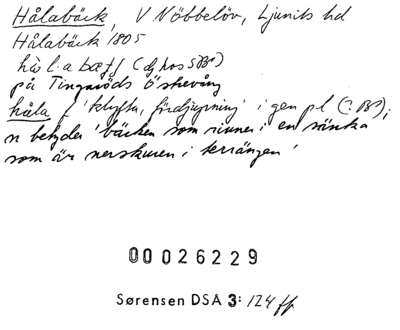 Hålabäck, V Nöbbelöv, Ljunits hd
Hålabäck 1805
hål:a bæk
på Tingaröds östevång
håla f 'klyfta, fördjupning' i gen pl
n betyder 'bäcken som rinner i en sänka
som är nerskuren i terrängen'
00026229
Sørensen DSA 3: 124 ff